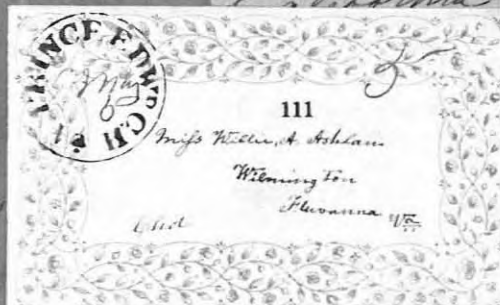 PRINCE EDWD C.H. VA
May
6
5
111
Miss Willie A.
Wilmington
Fluvanna Va